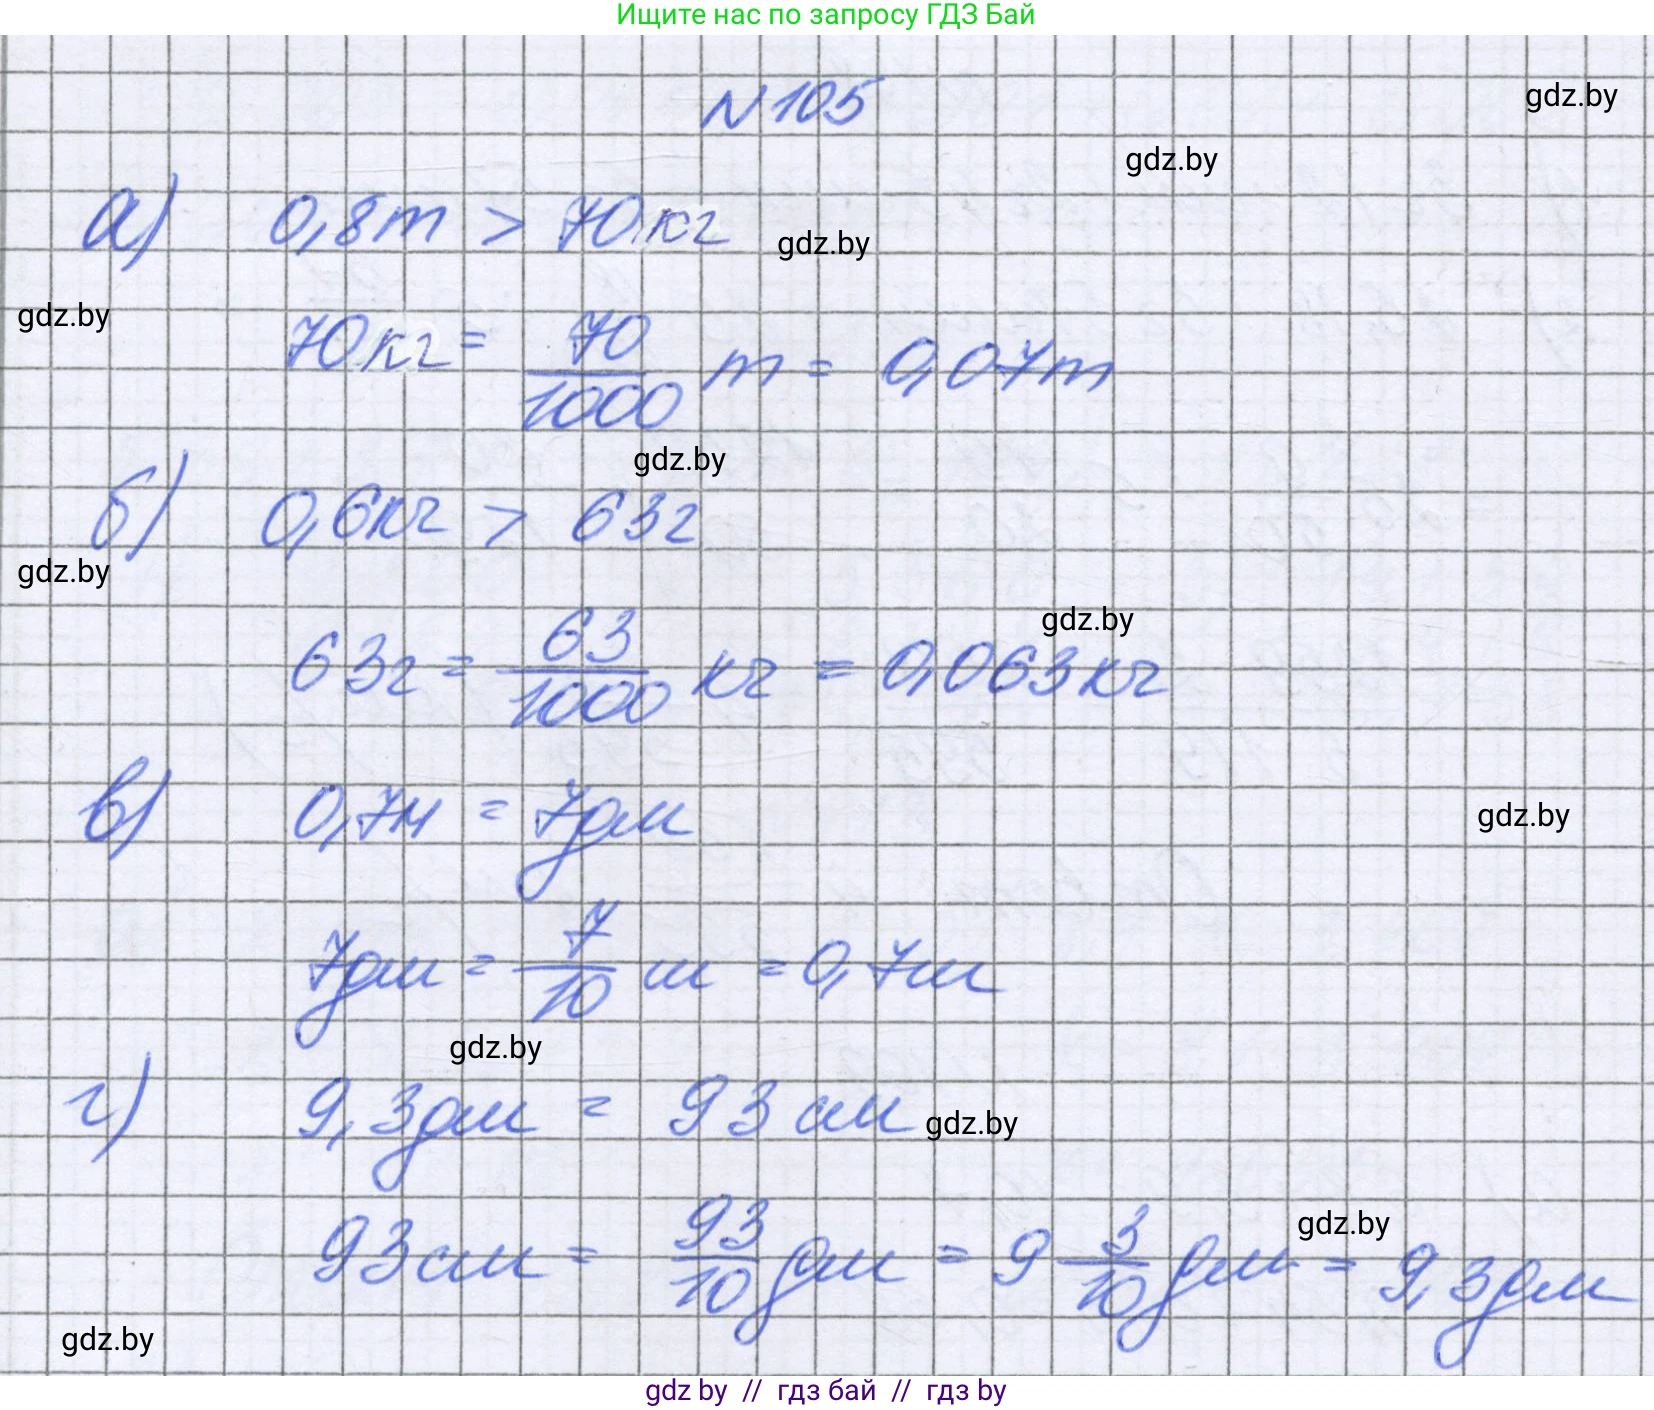 Ищите нас по запросу ГДЗ Бай
N 105
gdz.by
gdz.by
а) 0,8т > 70кг
gdz.by
gdz.by
70кг = 70/1000 т = 0,07т
gdz.by
б) 0,6кг > 63г
gdz.by
gdz.by
63г = 63/1000 кг = 0,063кг
в) 0,7м = 7дм
gdz.by
7дм = 7/10 м = 0,7м
gdz.by
г) 9,3дм = 93 см
gdz.by
gdz.by
93см = 93/10 дм = 9 3/10 дм = 9,3дм
gdz.by
gdz by // гдз бай // гдз by